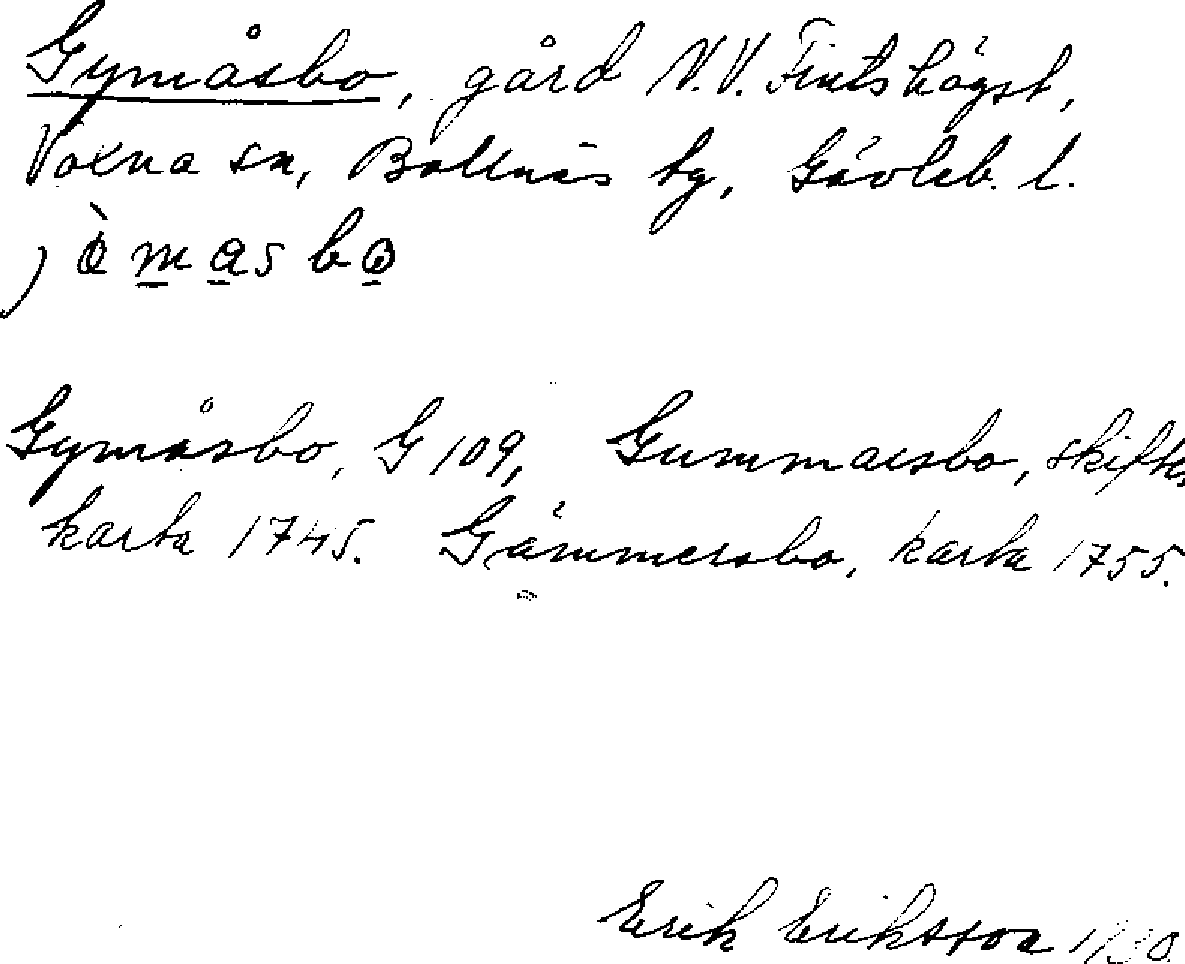 Gymåsbo, gård N.V. Fintshögst,
Voxna sn, Bollnäs tg, Gävleb. l.
Gymåsbo, G 109, Gummaesbo, skiftes
karta 1745. Gämmersbo, karta 1755.
Erik Eriksson